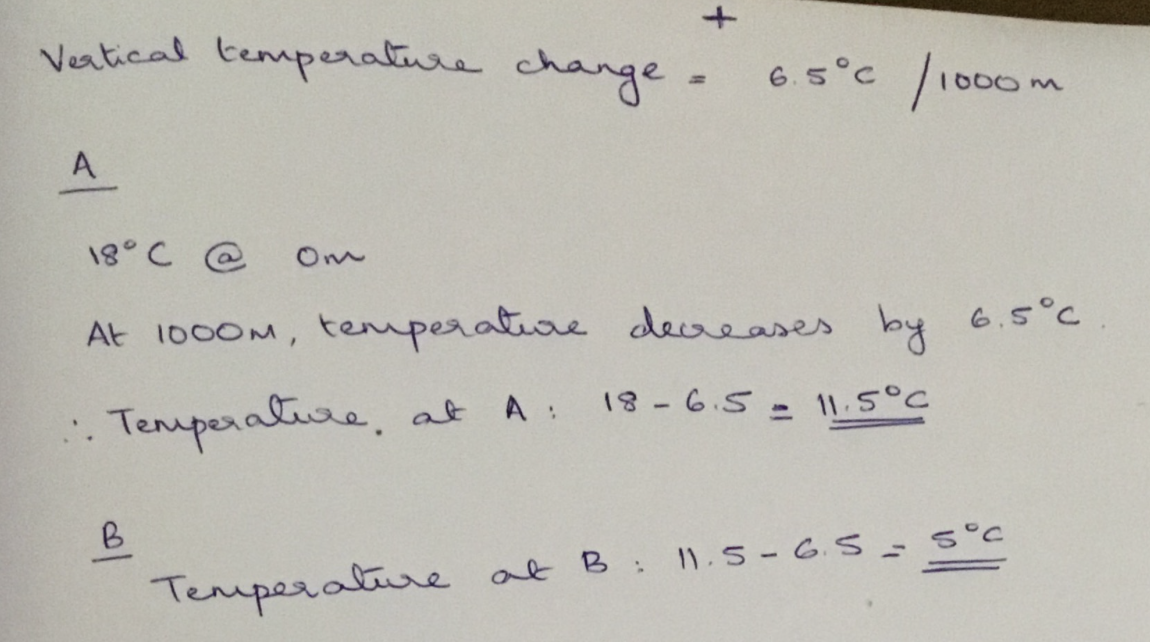 +
Vertical temperature change = 6.5°C /1000m
A
18°C @ 0m
At 1000M, temperature decreases by 6.5°C.
∴ Temperature. at A : 18 - 6.5 = 11.5°C
B
Temperature at B : 11.5 - 6.5 = 5°C